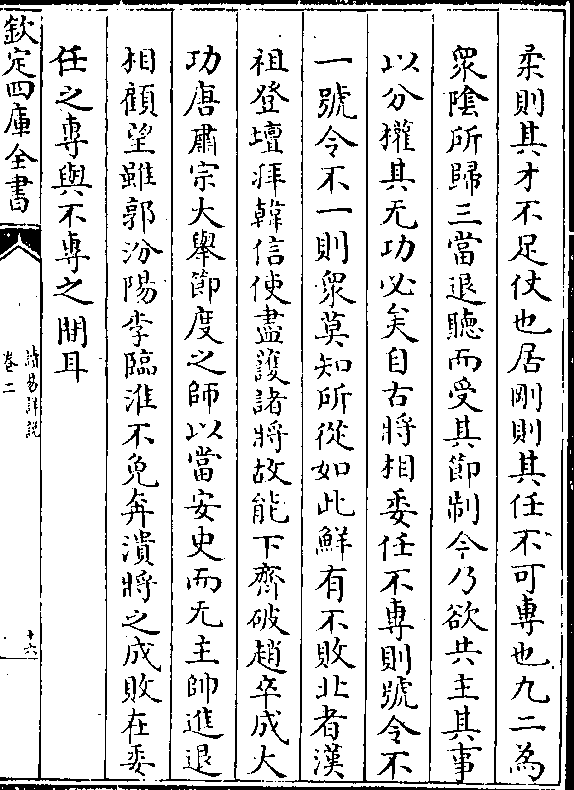 柔則其才不足仗也居剛則其任不可專也九二為
衆陰所歸三當退聽而受其節制今乃欲共主其事
以分權其无功必矣自古將相委任不專則號令不
一號令不一則衆莫知所從如此鮮有不敗北者漢
祖登壇拜韓信使盡護諸將故能下齊破趙卒成大
功唐肅宗大舉節度之師以當安史而无主帥進退
相顧望雖郭汾陽李臨淮不免奔潰將之成敗在委
任之專與不專之間耳
欽定四庫全書
讀易詳說
卷二
十六